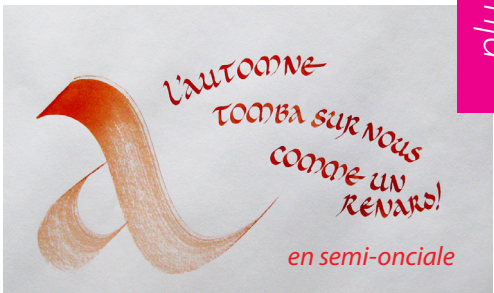 plu
a
L'AUTOMNE
TOMBA SUR NOUS
COMME UN
RENARD!
en semi-onciale